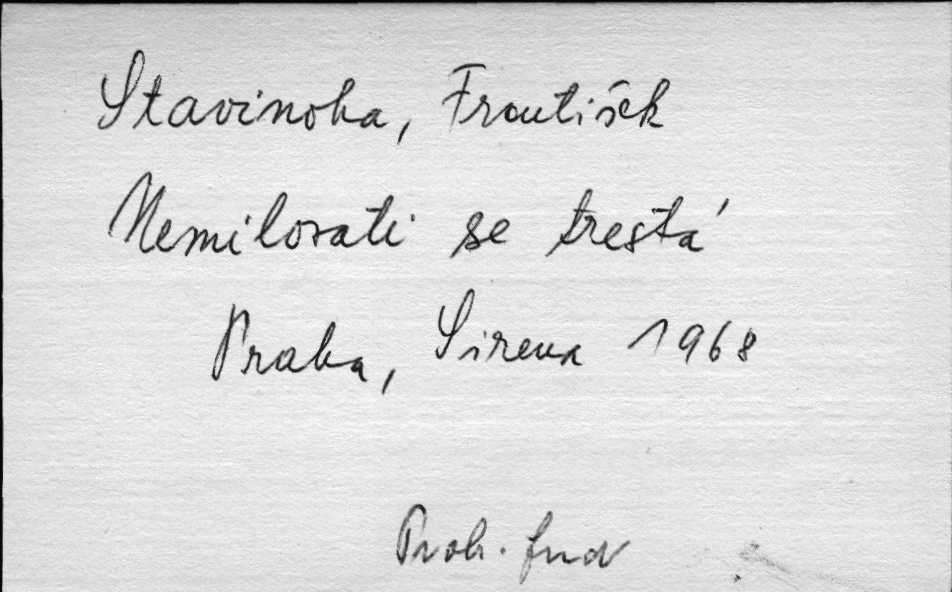 Stavinoha, František
Nemilovati se trestá
Praha, Sirena 1968
Proh. fnd